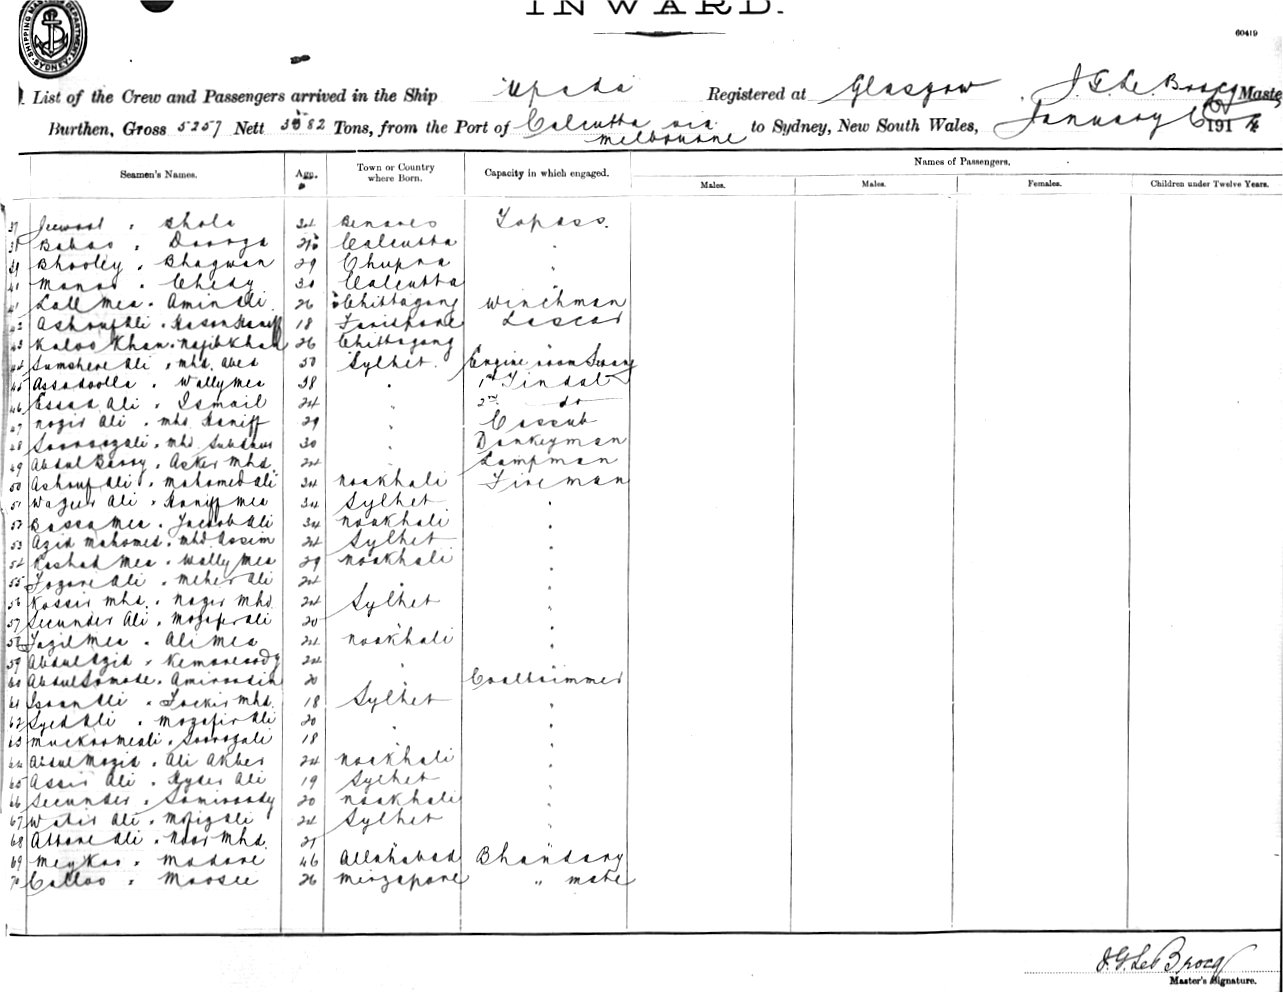 INWARD.
SHIPPING MASTER'S DEPARTMENT. SYDNEY.
60419
List of the Crew and Passengers arrived in the Ship Upada Registered at Glasgow, J. G. Le Brocq Master
Burthen, Gross 5257 Nett 82 Tons, from the Port of Calcutta via Melbourne to Sydney, New South Wales, January 191
Names of Passengers.
Seamen's Names. Age. Town or Country where Born. Capacity in which engaged. Males. Males. Females. Children under Twelve Years.
37 34 Benares Topass.
38 Calcutta "
39 Bhooley . Bhagwan 29 Chupra "
Chedy 30 Calcutta "
41 Lall Mea . Amin Ali 26 Chittagong Winchman
42 Ashruf Ali . 18 Lascar
43 Kaloo Khan . Najib Khan 26 Chittagong "
44 Ali . Mhd. Abed 50 Sylhet. Engine room Serang
45 Assadoolla . Wally Mea 38 " 1st Tindal
46 Essad Ali . Ismail 24 " 2nd do
47 Nazir Ali . Mhd Haniff 29 " Cassub
48 30 " Donkeyman
49 Abdul Barry . Asker Mhd. 24 " Lampman
50 Ashruf Ali . Mahomed Ali 34 Noakhali Fireman
51 Wazeer Ali . Haniff Mea 34 Sylhet "
52 Bassa Mea . Jacob Ali 34 Noakhali "
53 Azid Mahomed . Mhd. Assim 24 Sylhet "
54 Rashad Mea . Wally Mea 29 Noakhali "
55 Ali . Meher Ali 24 " "
56 Kassir Mhd. . Nazir Mhd 24 Sylhet "
57 Secunder Ali . Mozafer Ali 20 " "
58 Fazil Mea . Ali Mea 24 Noakhali "
59 Abdul Azid . 24 " "
60 Abdul Samode . Amiroodin 20 " Coaltrimmer
61 Isaan Ali . Fackir Mhd. 18 Sylhet "
62 Syed Ali . Mozafir Ali 20 " "
63 18 " "
64 Abdul Mazid . Ali Akber 24 Noakhali "
65 Assir Ali . Hyder Ali 19 Sylhet "
66 Secunder . Samiroody 20 Noakhali "
67 Wahir Ali . Ali 24 Sylhet "
68 Ali . Noor Mhd. 21 " "
69 Madare 46 Allahabad Bhandary
70 Calloo . Moosee 26 Mirzapore " mate
J. G. Le Brocq
Master's Signature.